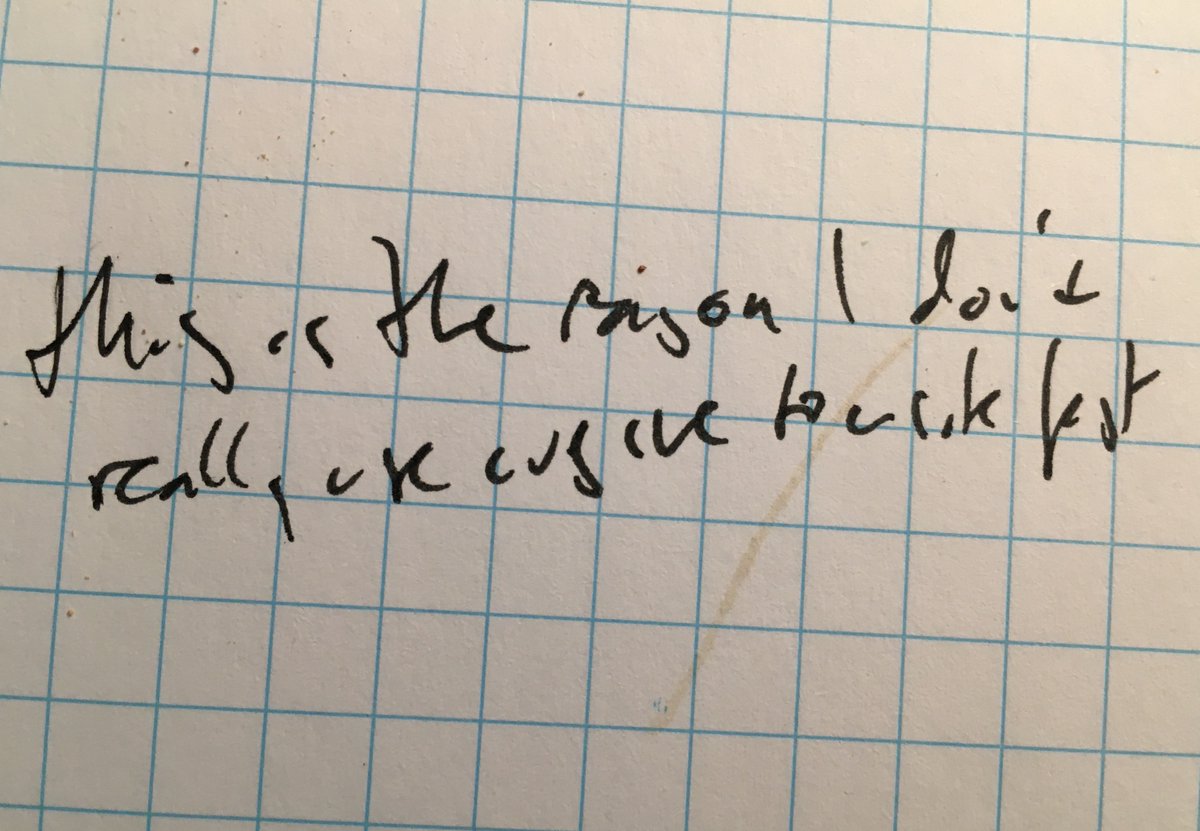 this is the reason I don't
really use cursive to write fast